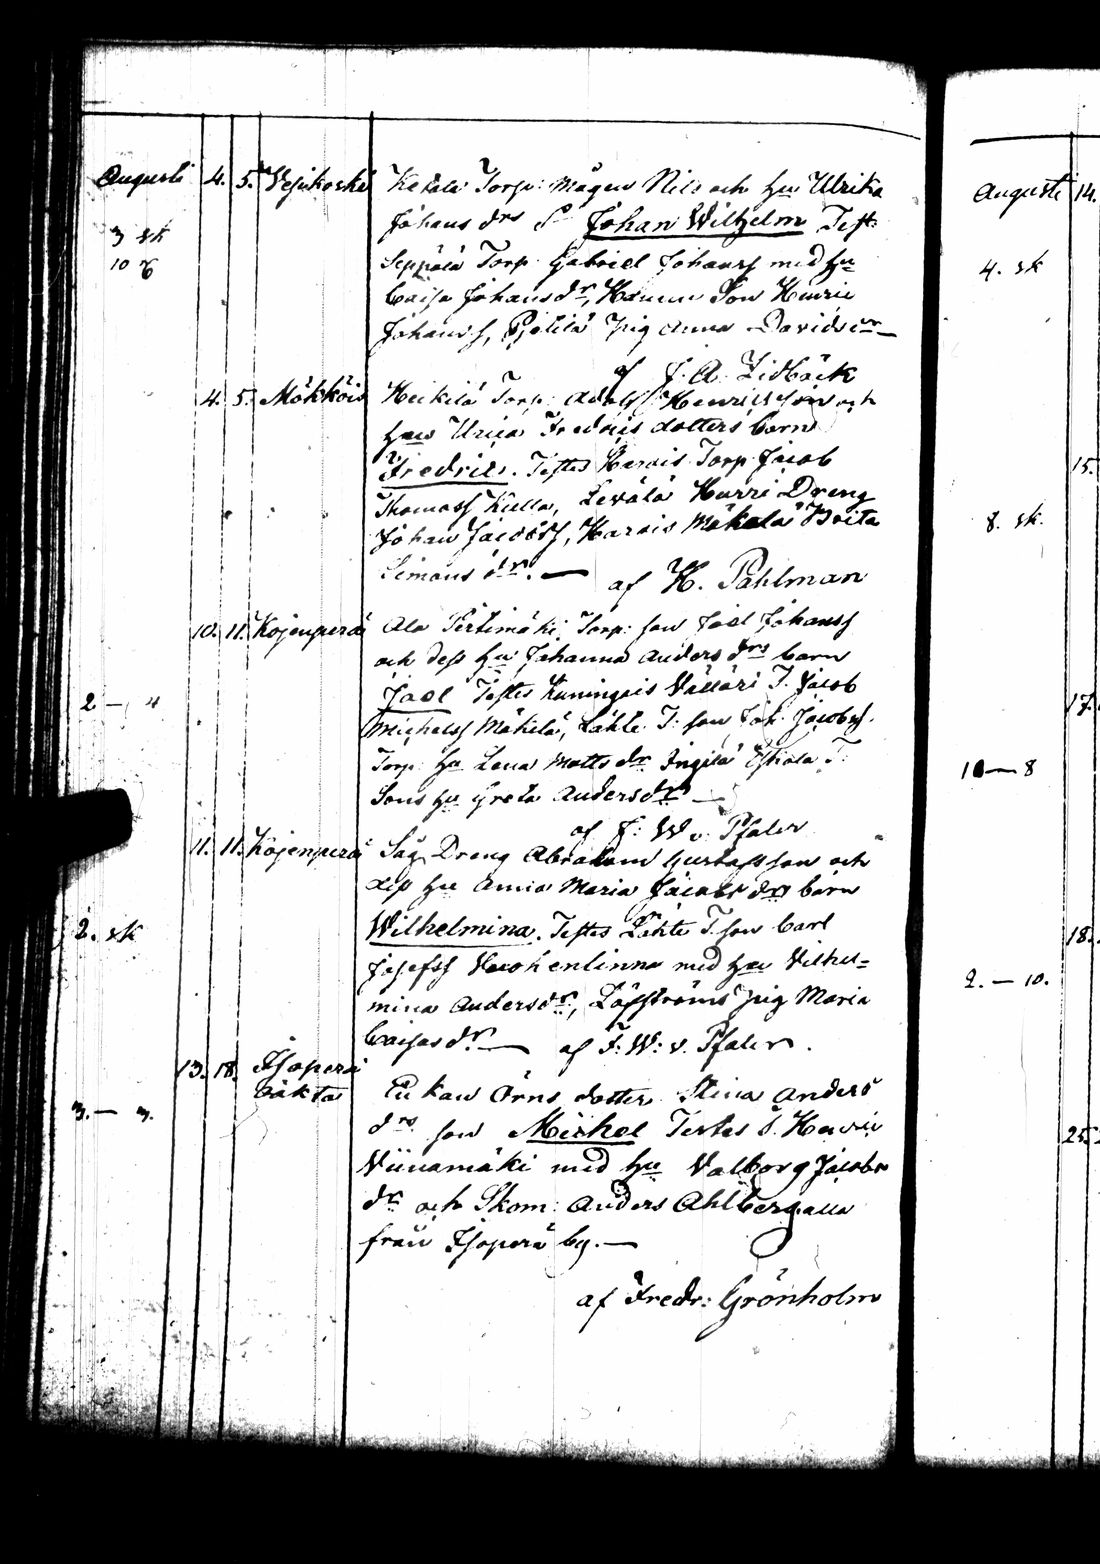 Augusti 4. 5. Vesikoski Ketala Torp: Mågen Nils och hu Ulrika
Johans drs S. Johan Wilhelm Test:
3 sk
Seppälä Torp: Gabriel Johanss med hu
10 r
Caisa Johansdr, Son Henric
Johanss, Pjetilä Pig Anna Davidsdr
af J. A. Lidbäck
4. 5. Mökköis Heikilä Torp: Adolf Henricsson och
hus Urica Fredrics dotters barn
Fredric. Testes Harois Torp Jacob
Thomass Kulla, Levälä Harri Dreng
Johan Jacobss, Harois Mäkelä Brita
Simons dr. — af H. Pahlman
10. 11. Kojenperä Ala Perttimäki Torp: son Joel Johanss
och dess hu Johanna Anders drs barn
Joel Testes Kuningois Välläri T. Jacob
2 — 4
Michelss Mäkilä, Lähte T: son Joh. Jacobss.
Torp: hu Lena Matts dr Ingilä Eskola T:
Sons hu Greta Andersdr —
af F: W v. Pfaler
11. 11. Kojenperä Säg Dreng Abraham Gustafsson och
dess hu Anna Maria Jacobs drs barn
2. sk
Wilhelmina. Testes Lähte T. son Carl
Josefss med hu Vilhel=
mina Andersdr, Löfströms Pig Maria
Caisasdr. — af F: W: v. Pfaler.
13. 18. Isoperä
Bakta
Anders Stina dotter Örns
3. — 3.
drs son Michel Testes S. Henric
Viinamäki med hu Valborg Jacobs
dr och Skom: Anders Ahlberg alla
från Isoperä by. —
af Fredr: Grönholm
Augusti 14.
4. sk
15.
8. sk.
17.
10 — 8
18.
2. — 10.
25.